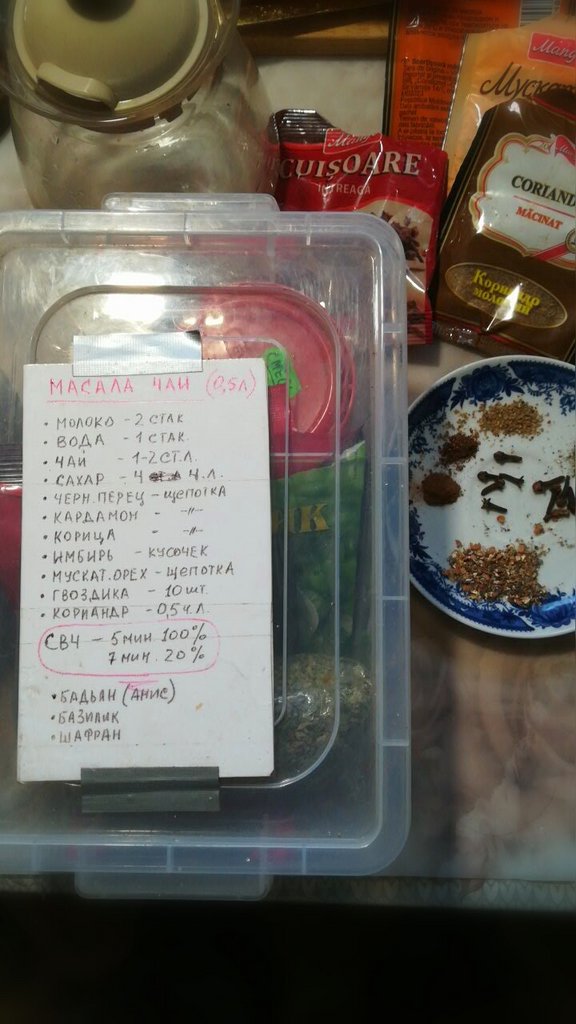 Mang
CUIȘOARE
ÎNTREAGĂ
CORIAND
MĂCINAT
Кориандр
молотый
МАСАЛА ЧАИ (0,5Л)
• МОЛОКО - 2 СТАК
• ВОДА - 1 СТАК.
• ЧАИ - 1-2 СТ.Л.
• САХАР - 4 Ч.Л.
• ЧЕРН. ПЕРЕЦ - ЩЕПОТКА
• КАРДАМОН " -//-
• КОРИЦА " -//-
• ИМБИРЬ - КУСОЧЕК
• МУСКАТ. ОРЕХ - ЩЕПОТКА
• ГВОЗДИКА - 10 ШТ.
• КОРИАНДР - 0,5 Ч.Л.
СВЧ - 5 МИН 100%
7 МИН. 20%
• БАДЬЯН (АНИС)
• БАЗИЛИК
• ШАФРАН
ИК